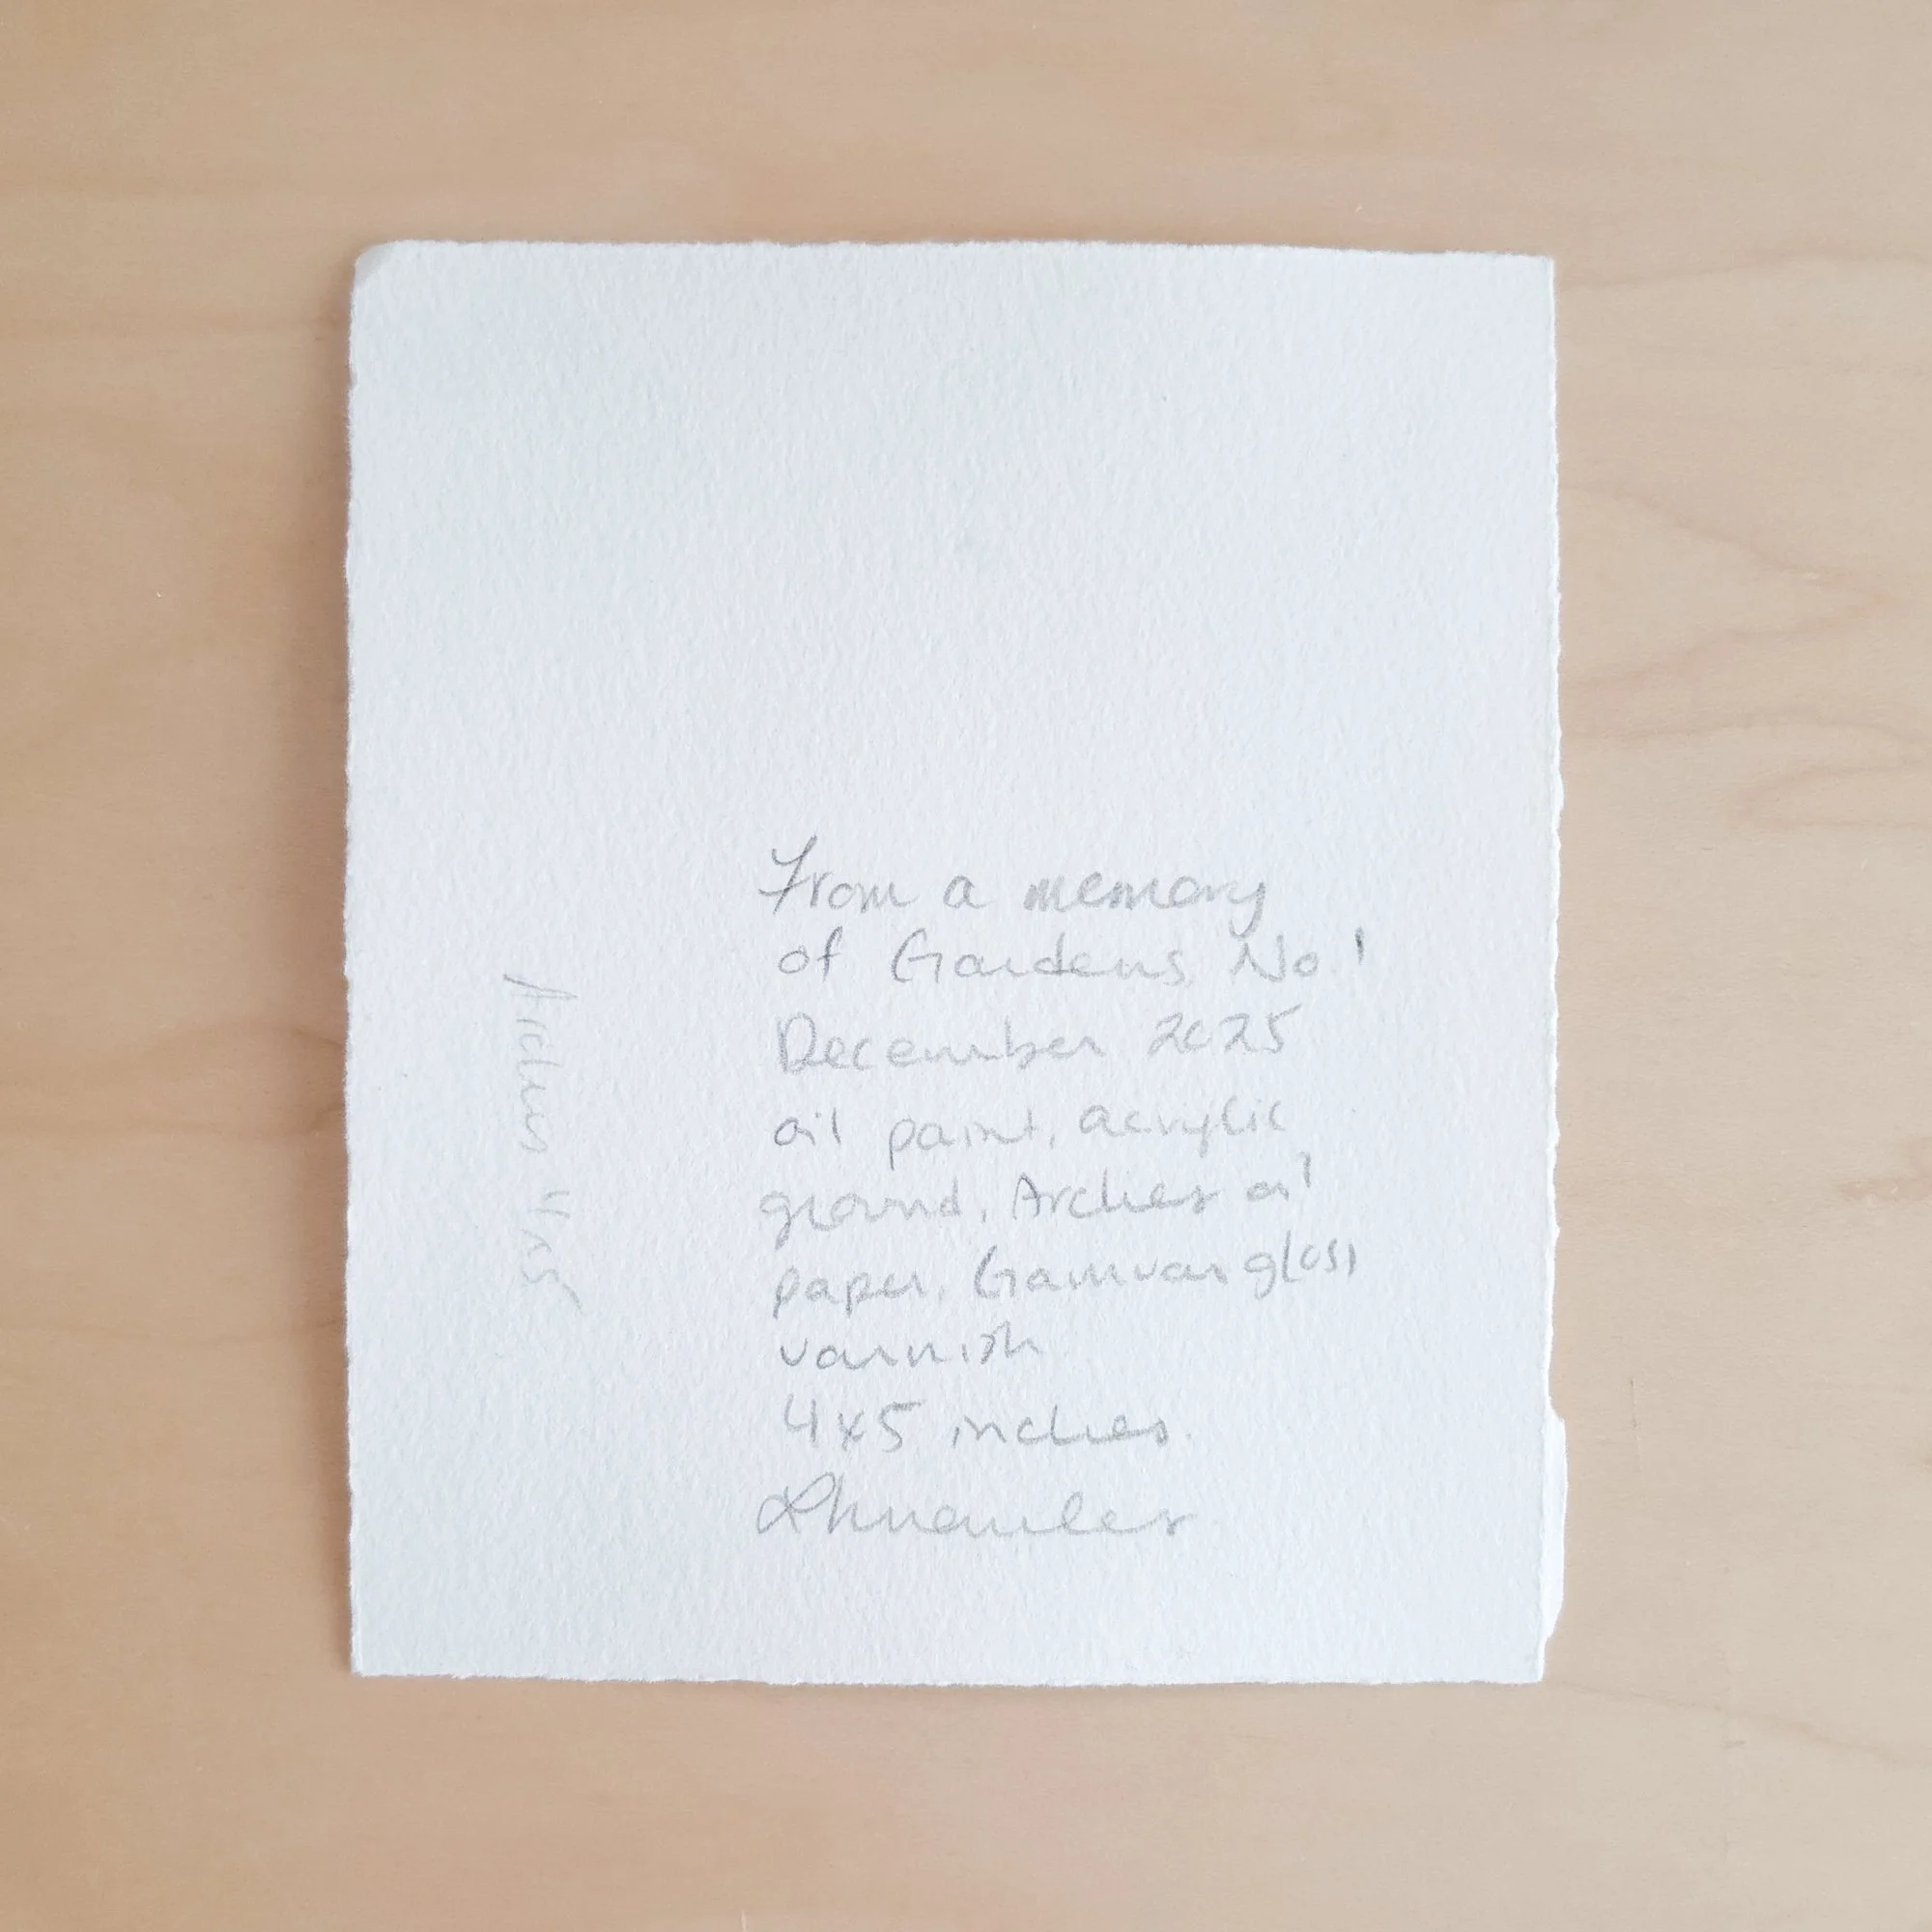 From a memory
of Gardens No. 1
December 2025
oil paint, acrylic
ground, Arches oil
paper, Gamvar gloss
varnish
4x5 inches.
Arches